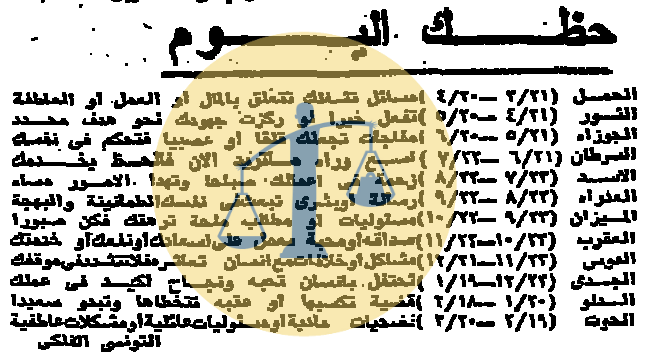 حظك اليوم
الحمل (٣/٢١ – ٤/٢٠) مسائل تشغلك تتعلق بالمال او العمل او العاطفة
الثور (٤/٢١ – ٥/٢٠) تفعل خيرا لو ركزت جهودك نحو هدف محدد
الجوزاء (٥/٢١ – ٦/٢٠) مفاجآت تجعلك قلقا او عصبيا فتحكم فى نفسك
السرطان (٦/٢١ – ٧/٢٢) اسع وراء الآن فالحظ يخدمك
الاسد (٧/٢٣ – ٨/٢٢) زحمة اعمالك صباحا وتهدأ الامور مساء
العذراء (٨/٢٣ – ٩/٢٢) رسالة او بشرى تبعث فى نفسك الطمأنينة والبهجة
الميزان (٩/٢٣ – ١٠/٢٢) مسئوليات او مطالب ملحة ترهقك فكن صبورا
العقرب (١٠/٢٣ – ١١/٢٢) صداقة او محبة تعمل على اسعادك أو نفعك أو خدمتك
القوس (١١/٢٣ – ١٢/٢١) مشاكل أو خلافات مع انسان فلا تتشدد فى موقفك
الجدى (١٢/٢٢ – ١/١٩) تحتفل بانسان تحبه ونجاح اكيد فى عملك
الدلو (١/٢٠ – ٢/١٨) قضية تكسبها او عقبة تتخطاها وتبدو سعيدا
الحوت (٢/١٩ – ٣/٢٠) تضحيات مادية أو مسئوليات عائلية أو مشكلات عاطفية
التونسى الفلكى